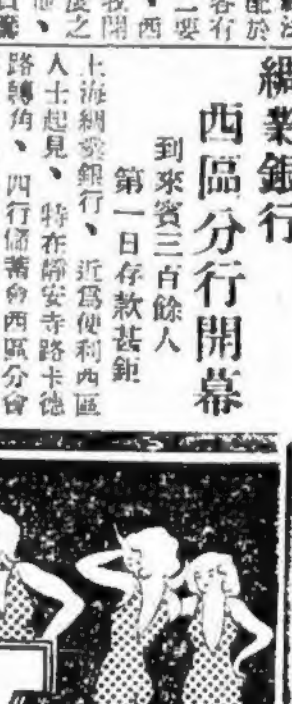 綢業銀行
西區分行開幕
到來賓三百餘人
第一日存款甚鉅
上海綢業銀行、近爲便利西區
人士起見、特在靜安寺路卡德
路轉角、四行儲蓄會西區分會